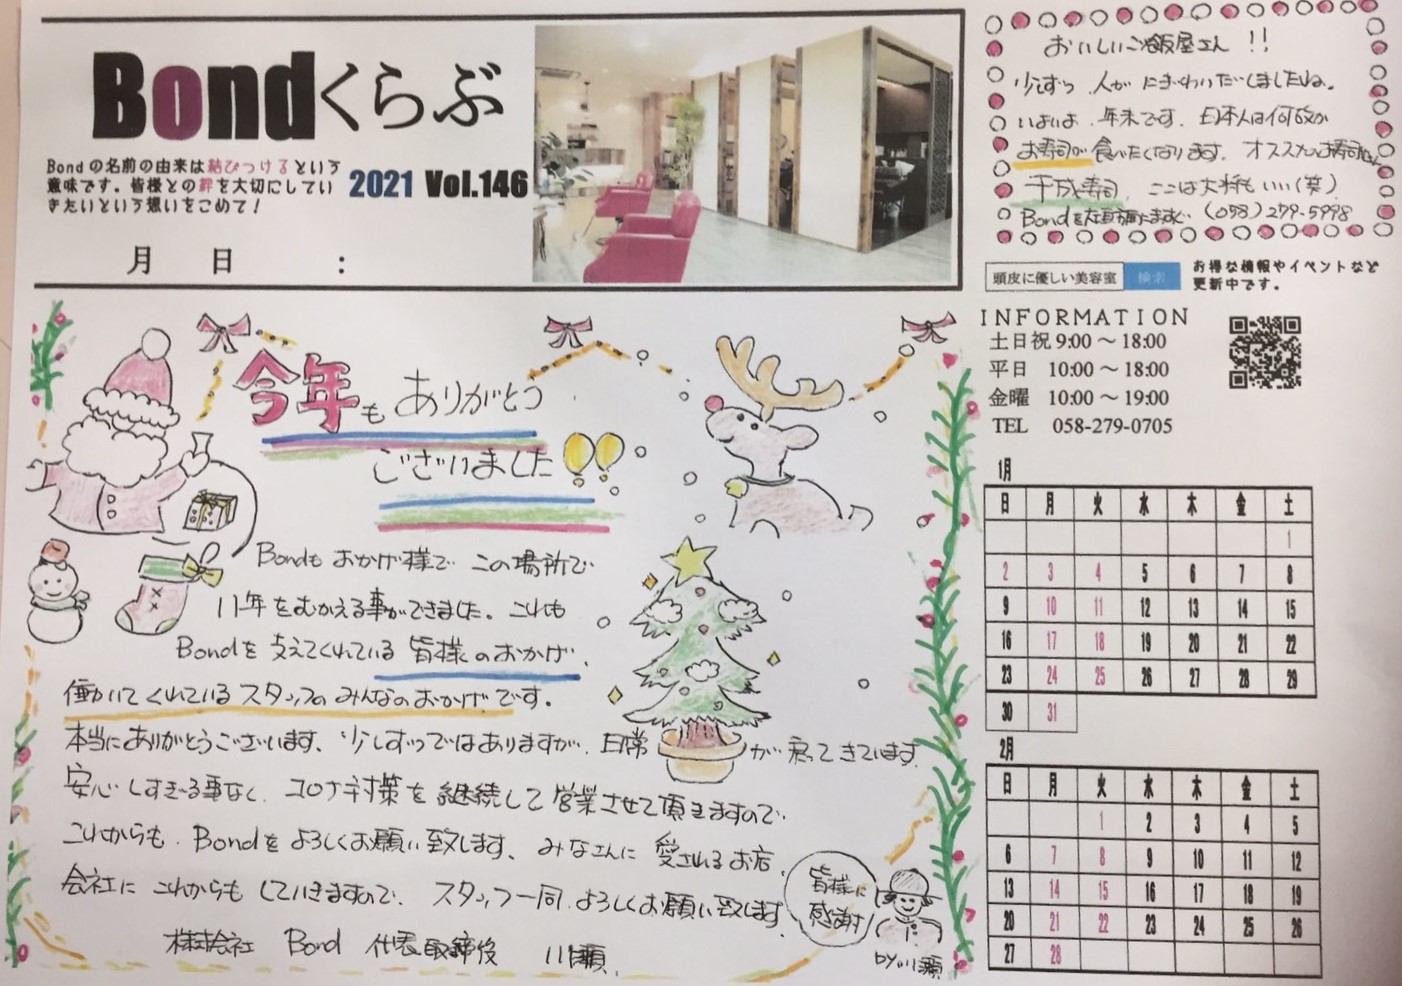 Bondくらぶ
Bondの名前の由来は結びつけるという
意味です。皆様との絆を大切にしてい
きたいという想いをこめて！
2021 Vol.146
月 日 :
おいしいご飯屋さん !!
少しずつ、人が にぎわいだしましたね。
いよいよ、年末です。日本人は何故か
お寿司が食べたくなります。オススメのお寿司さん
千成寿司、ここは大将もいい(笑)
Bondを左直すぐ (058)279-5998
頭皮に優しい美容室 検索
お得な情報やイベントなど
更新中です。
INFORMATION
土日祝 9:00 ～ 18:00
平日 10:00 ～ 18:00
金曜 10:00 ～ 19:00
TEL 058-279-0705
今年も ありがとう
ございました
Bondも おかげ様で この場所で
11年をむかえる事ができました。これも
Bondを 支えてくれている 皆様のおかげ、
働いてくれているスタッフのみんなのおかげです。
本当にありがとうございます、少しずつではありますが、日常が戻ってきています。
安心しすぎる事なく、コロナ対策を継続して営業させて頂きますので、
これからも、Bondをよろしくお願い致します、みなさんに愛されるお店、
会社に これからも していきますので、スタッフ一同、よろしくお願い致します。
株式会社 Bond 代表取締役 川瀬
皆様に
感謝!
by川瀬
1月
日 月 火 水 木 金 土
1
2 3 4 5 6 7 8
9 10 11 12 13 14 15
16 17 18 19 20 21 22
23 24 25 26 27 28 29
30 31
2月
日 月 火 水 木 金 土
1 2 3 4 5
6 7 8 9 10 11 12
13 14 15 16 17 18 19
20 21 22 23 24 25 26
27 28